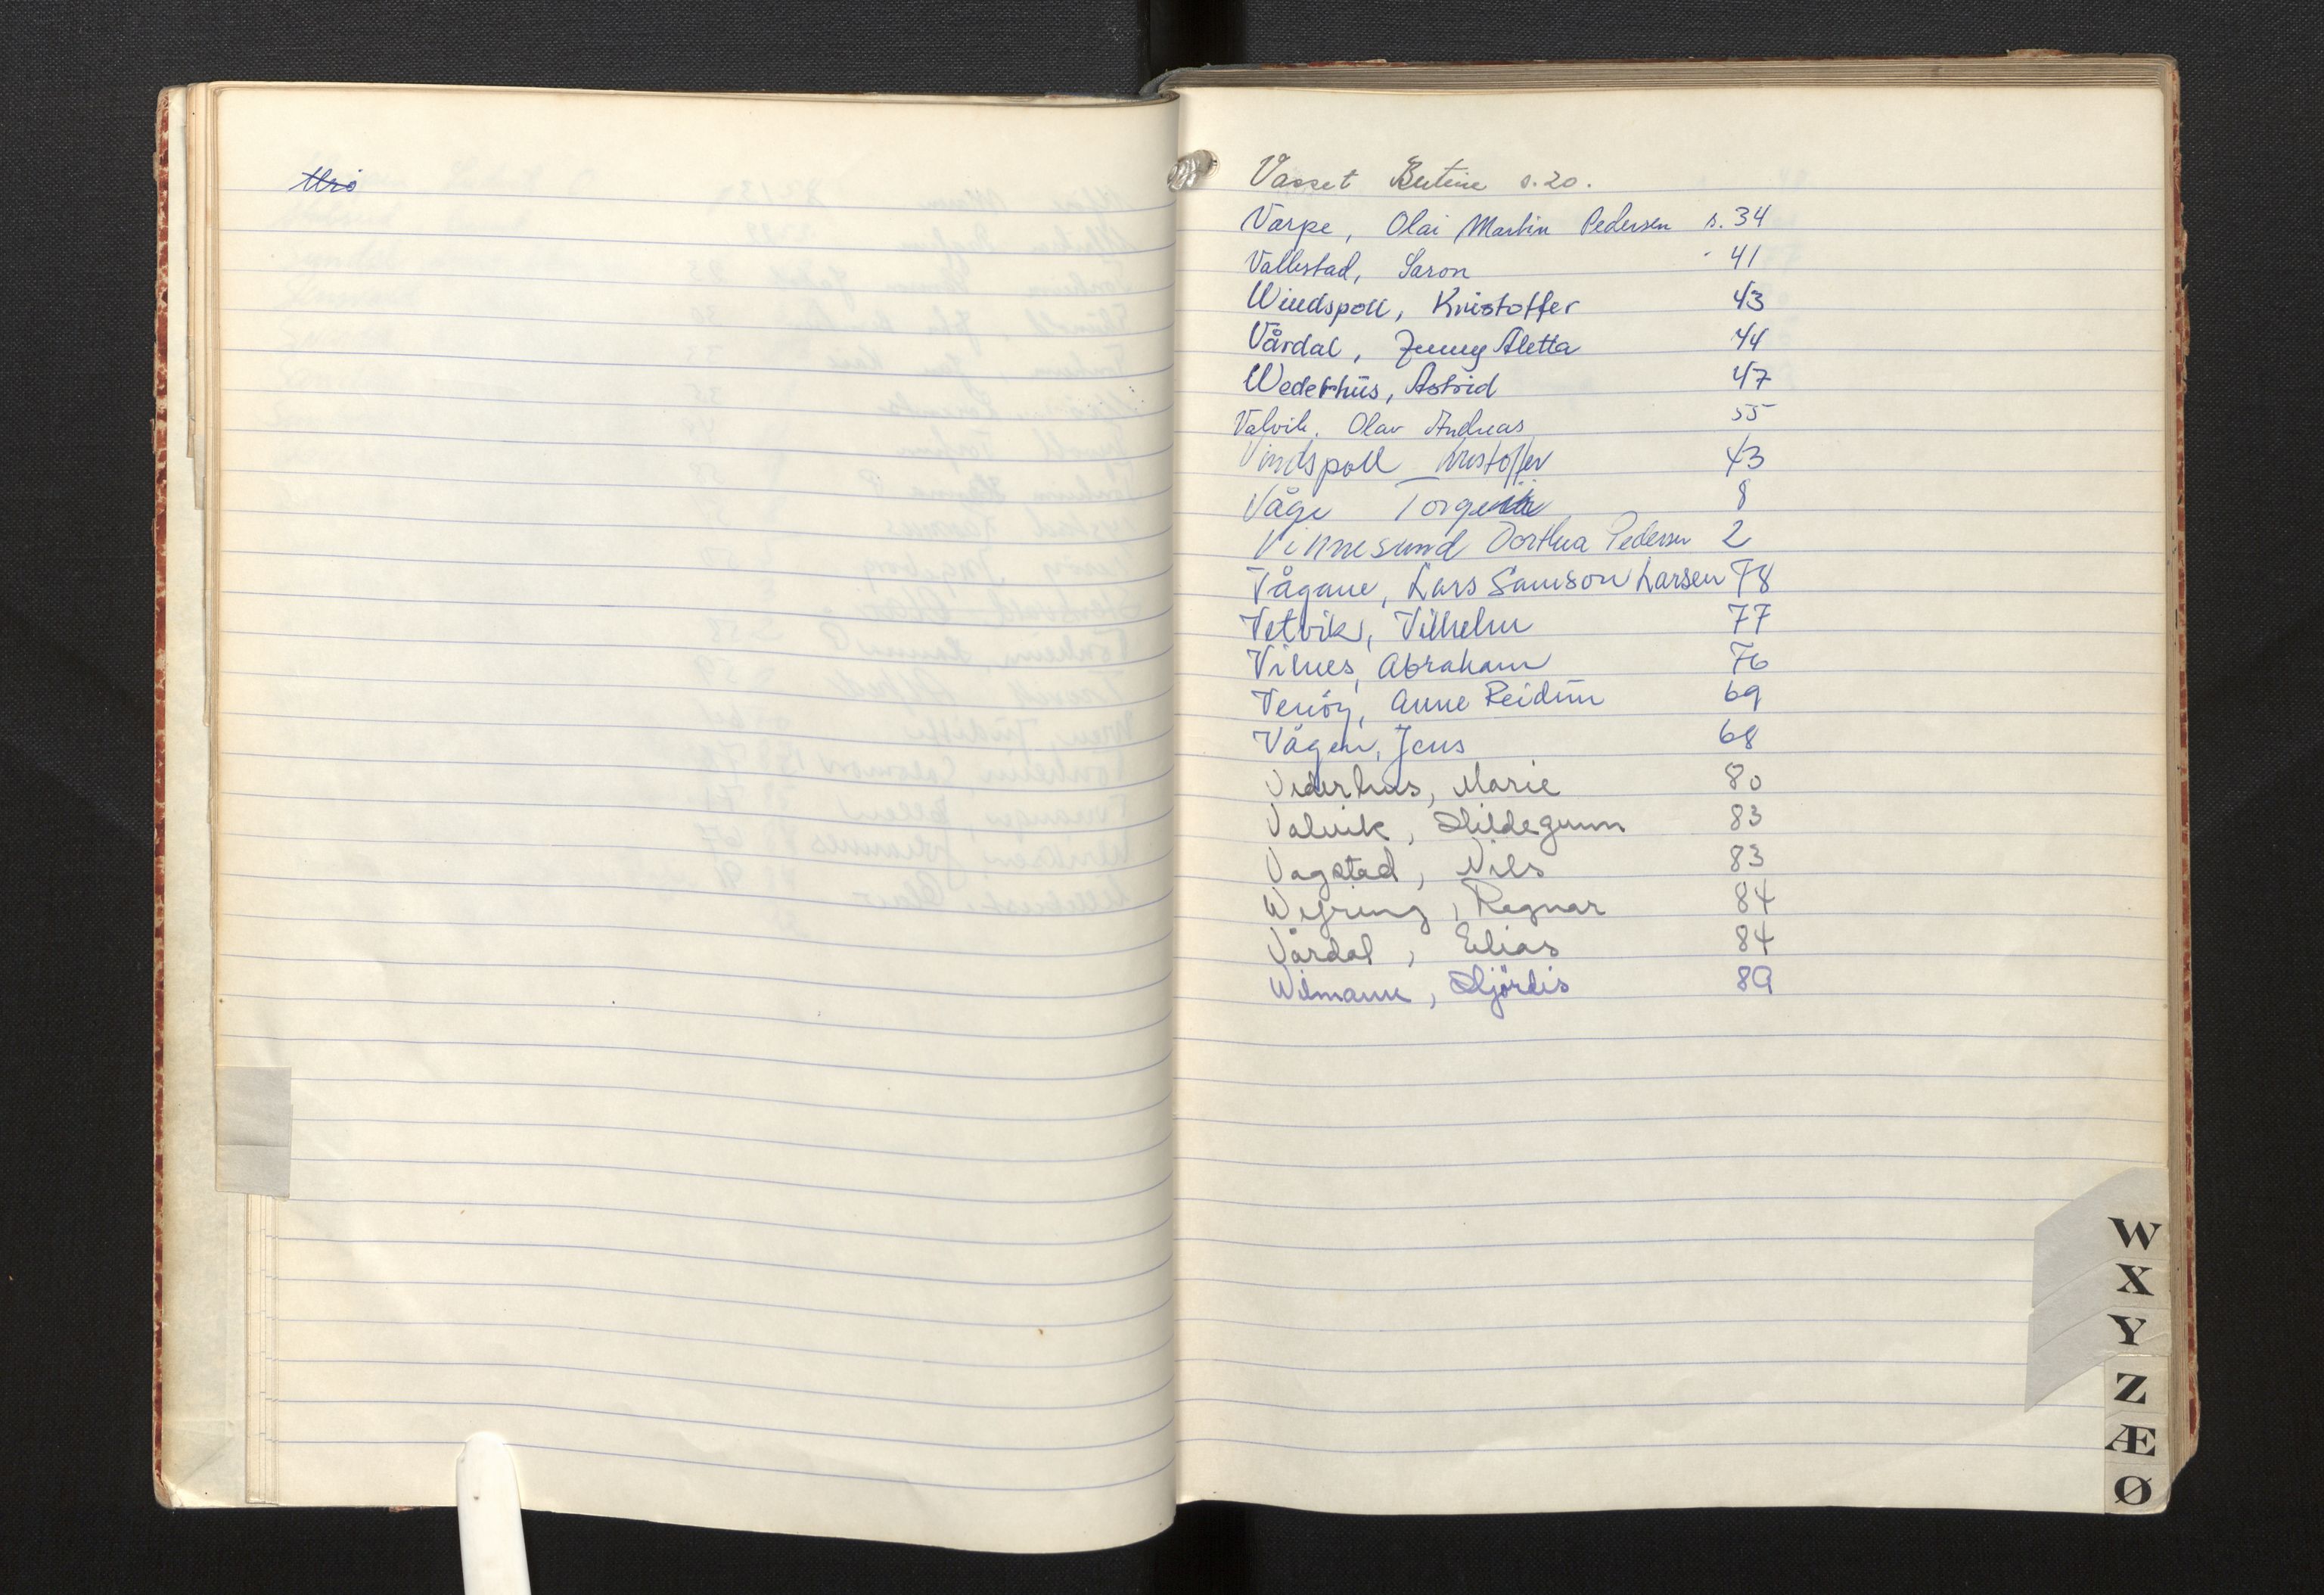 Vasset Butine s.20.
Varpe, Olai Martin Pedersen s. 34
Vallestad, Saron 41
Windspoll, Kristoffer 43
Vårdal, Jenny Aletta 44
Wederhus, Astrid 47
Valvik. Olav Andreas 55
Vindspoll Kristoffer 43
Våge 8
Vinnesund Dorthea Pedersen 2
Vågane, Lars Samson Larsen 78
Vetvik, Vilhelm 77
Vilnes, Abraham 76
Verøy, Anne Reidun 69
Vågen, Jens 68
Vederhus, Marie 80
Valvik, Hildegunn 83
Vagstad, Nils 83
Wefring, Ragnar 84
Vårdal, Elias 84
Wilmann, Hjördis 89
W
X
Y
Z
Æ
Ø